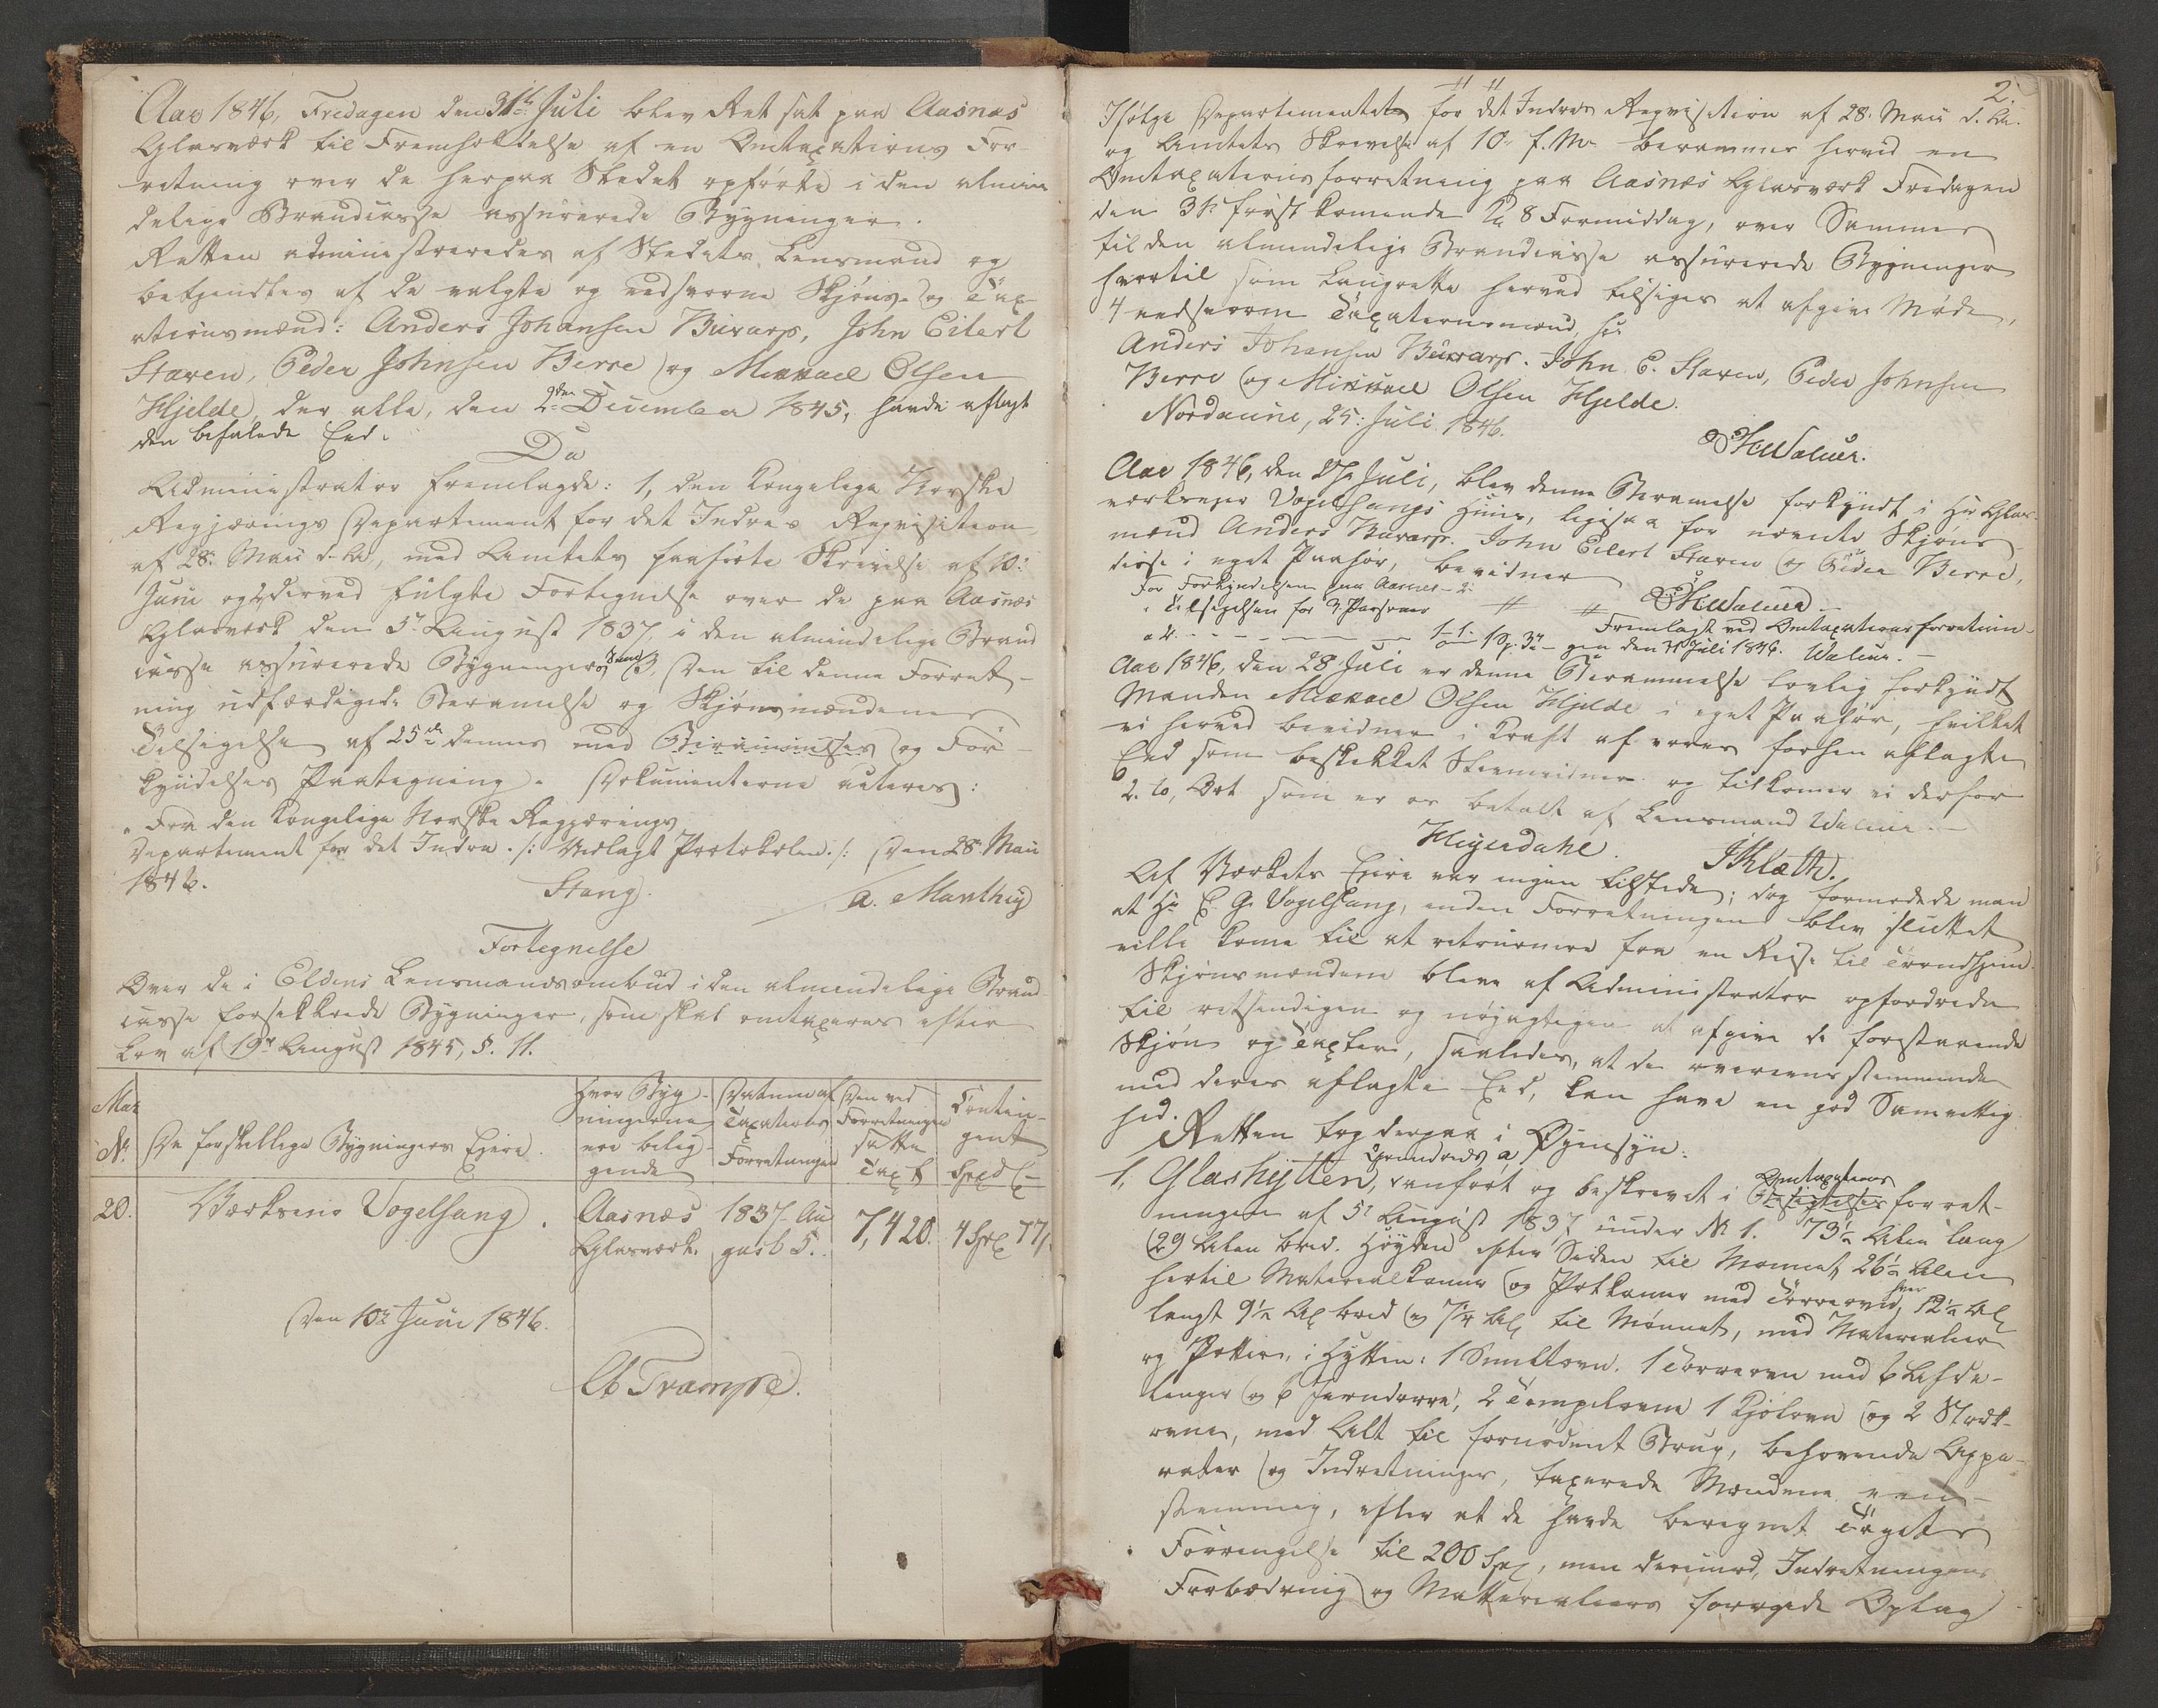 Aar 1846, Fredagen den 31te Juli blev Ret sat paa Aasnæs
Glasværk til Fremholdelse af en Omtaxations For-
retning over de herpaa Stedet opførte i den almin
delige Brandcasse assurerede Bygninger.
Retten administreredes af Stedets Lensmand og
betjendtes af de valgte og eedsvorne Skjøns- og Tax-
ationsmænd: Anders Johansen Buvarp, John Eilert
Staven, Peder Johnsen Berre og Mikkael Olsen
Hjelde, der alle, den 2den December 1845, havde aflagt
den befalede Eed.
Da
Administrator fremlagde: 1, den Kongelige Norske
Regjærings Departement for det Indres Reqvisition
af 28. Mai d. A., med Amtets paaførte Skrivelse af 10.
Juni og derved fulgte Fortegnelse over de paa Aasnæs
Glasværk den 5. August 1837, i den almindelige Brand
casse assurerede Bygninger, Den til denne Forret-
ning udfærdigede Berammelse og Skjønsmændenes
Tilsigelse af 25de dennes med Berammelses og For-
kyndelses Paategning. Dokumenterne acteres:
Fra den Kongelige Norske Regjærings
Departement for det Indre ./: Vedlagt Protokolen :/. Den 28. Mai
1846.
Stang.
A. Manthey
Fortegnelse
Over de i Eldens Lensmandsombud i den almindelige Brand
casse forsikkrede Bygninger, som skal omtaxeres efter
Lov af 19de August 1845, §. 11.
Mat No.
De forskjellige Bygningers Ejere.
hvor Byg-
ningerne
ere belig-
gende
Datum af
Taxations
Forretningen
Den ved
Forretningen
satte
Taxt
Contin-
gent
Spd
20. Værkseier Vogelsang. Aasnæs 1837 Au 7,420. 4 Spd 77
Glasværk. gust 5.
Den 10de Juni 1846.
Trampe.
2.
Ifølge Departementets for det Indres Reqvisition af 28. Mai d. A.
og Amtets Skrivelse af 10. f. M. berammes herved en
Omtaxationsforretning paa Aasnæs Glasværk Fredagen
den 31. førstkomende Kl. 8 Formiddag, over Sammes
til den almindelige Brandcasse assurerede Bygninger
hvortil som Laugrette herved tilsiges at afgive Møde,
4 eedsvorne Taxationsmænd,
Anders Johansen Buvarp. John E. Staven, Peder Johnsen
Berre og Mikkael Olsen Hjelde.
Nordaune, 25. Juli 1846.
Walaue.
Aar 1846, den 27. Juli, blev denne Berammelse forkyndt i Hr. Glas-
værkseyer Vogelsangs Huus, ligesaa for nævnte Skjøns-
mænd Anders Buvarp. John Eilert Staven og Peder Berre,
disse i eget Paahør, bevidner
For Forkyndelsen paa Aasnæs – 2
" Tilsigelsen for 3 Personer
Walaue.
Fremlagt ved Omtaxationsforretnin-
gen den 31 Juli 1846. Walaue.
Aar 1846, den 28. Juli er denne Berammelse lovlig forkyndt
Manden Mikkael Olsen Hjelde i eget Paahør, hvilket
vi herved bevidner i Kraft af vores forhen aflagte
Eed som beskikket Stevnevidner og tilkomer vi derfor
Ort som er os betalt af Lensmand Walaue.
Heyerdahl. J. Klæth.
Af Værkets Ejere var ingen tilstede; dog formodede man
at Hr. C. G. Vogelsang, inden Forretningen blev sluttet
ville kome til at retournere fra en Reise til Trondhjem.
Skjønsmændene bleve af Administrator opfordrede
til retsindigen og nøjagtigen at afgive de forestaaende
Skjøn og Taxter, saaledes, at de overeensstemmende
med deres aflagte Eed, kan have en god Samvittig
hed.
Retten tog derpaa i Øjensyn:
1, Glashytten, Grundrids a, anført og beskrevet i Omtaxations forret-
ningen af 5. August 1837, under No 1. 73½ Alen lang
29 Alen bred. Høyden efter Siden til Mønnet, 26½ Alen
hertil Materialkamer og Potkamer med Tørreovn, hver 12½ Al
langt 9½ Al bred og 7¼ Al til Mønnet, med Materialier
og Potter, i Hytten: 1 Smelteovn. 1 Tørreovn med 6 Afde-
linger og 6 Jerndørre, 2 Tempelovne 1 Kjøleovn og 2 Stræk-
ovne, med Alt til fornødent Brug, behovende Appa-
rater og Indretninger, taxerede Mændene een-
stemmig, efter at de havde beregnet Tagets
Forringelse til 200 Spd, men derimod, Indretningens
Forbedring og Materialiers forøgede Oplag